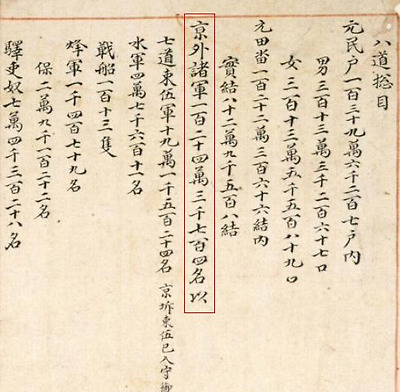 八道総目
元民户一百三十九萬六千二百七户內
男三百十三萬三千二百六十七口
女三百十三萬五千五百八十九口
元田畓一百二十二萬三百六十六結內
實結八十二萬九千五百八結
京外諸軍一百二十四萬三千七百四名以
七道束伍軍十九萬一千五百二十四名 京圻束伍已入守禦
水軍四萬七千六百十一名
戰船一百十三隻
烽軍一千四百七十九名
保二萬九千一百二十二名
驛吏奴七萬四千三百二十八名